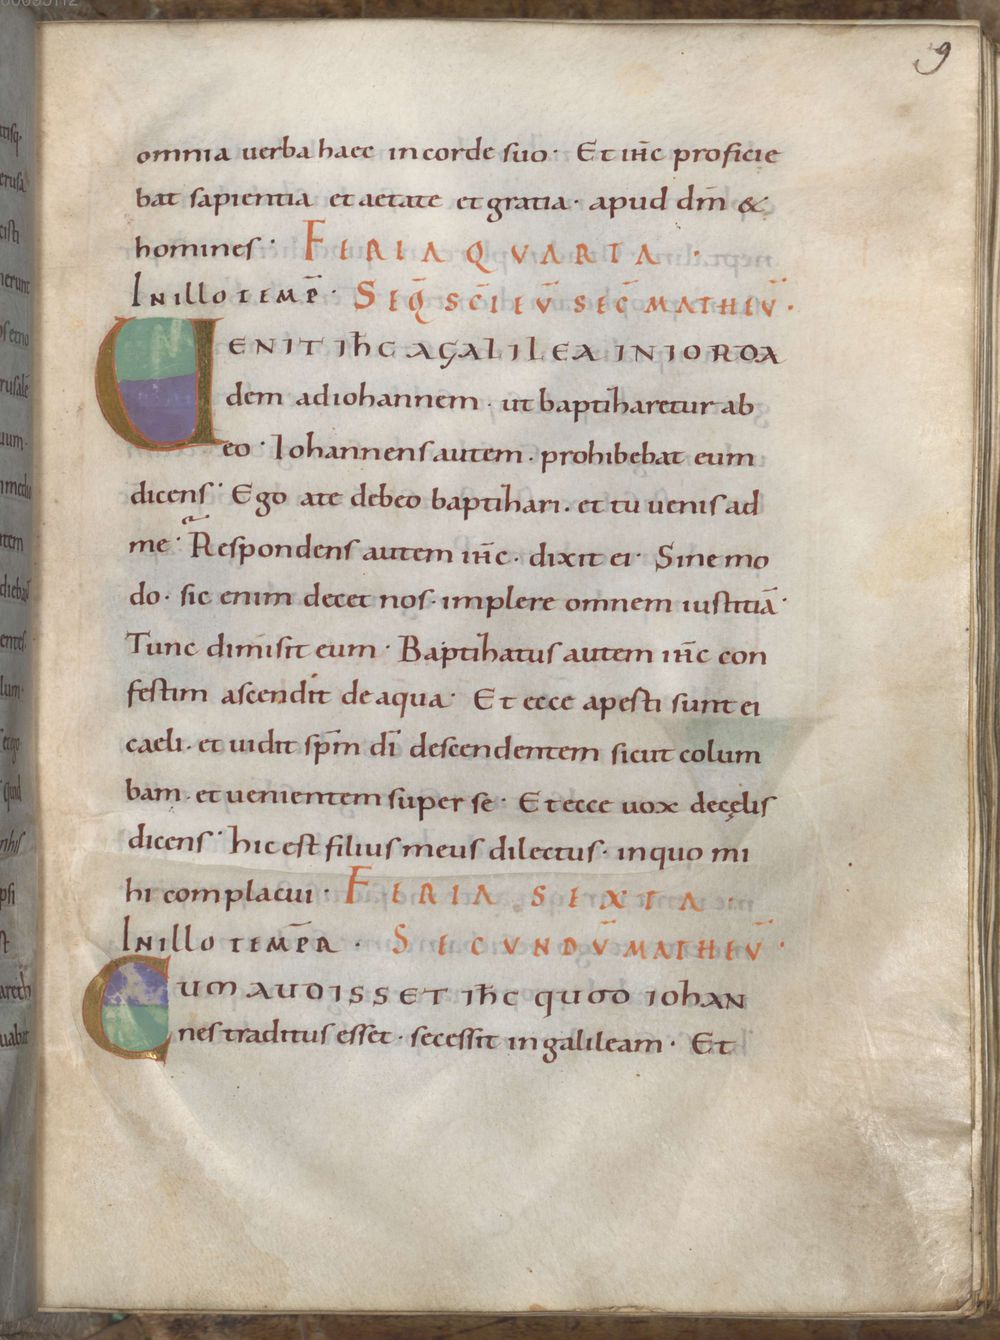 9
omnia uerba haec in corde suo· Et ih̅c proficie
bat sapientia et aetate et gratia· apud dm̅ &
homines· FERIA QVARTA·
In illo temp̅r· SEQ̅ S̅CI EV̅ SEC̅ MATHEV̅·
UENIT ih̅c A GALILEA IN IORDA
dem ad iohannem· ut baptiharetur ab
eo· Iohannens autem· prohibebat eum
dicens· Ego a te debeo baptihari· et tu uenis ad
me· Respondens autem ih̅c· dixit ei· Sine mo
do· sic enim decet nos· implere omnem iustitiā·
Tunc dimisit eum· Baptihatus autem ih̅c con
festim ascendit de aqua· Et ecce apesti sunt ei
caeli· et uidit sp̅m di̅ descendentem sicut colum
bam· et uenientem super se· Et ecce uox de cęlis
dicens· hic est filius meus dilectus· in quo mi
hi complacui· FERIA SEXTA·
In illo temp̅r· SECUNDV̅ MATHEV̅·
CUM AUDISSET ih̅c quod iohan
nes traditus esset· secessit in galileam· Et